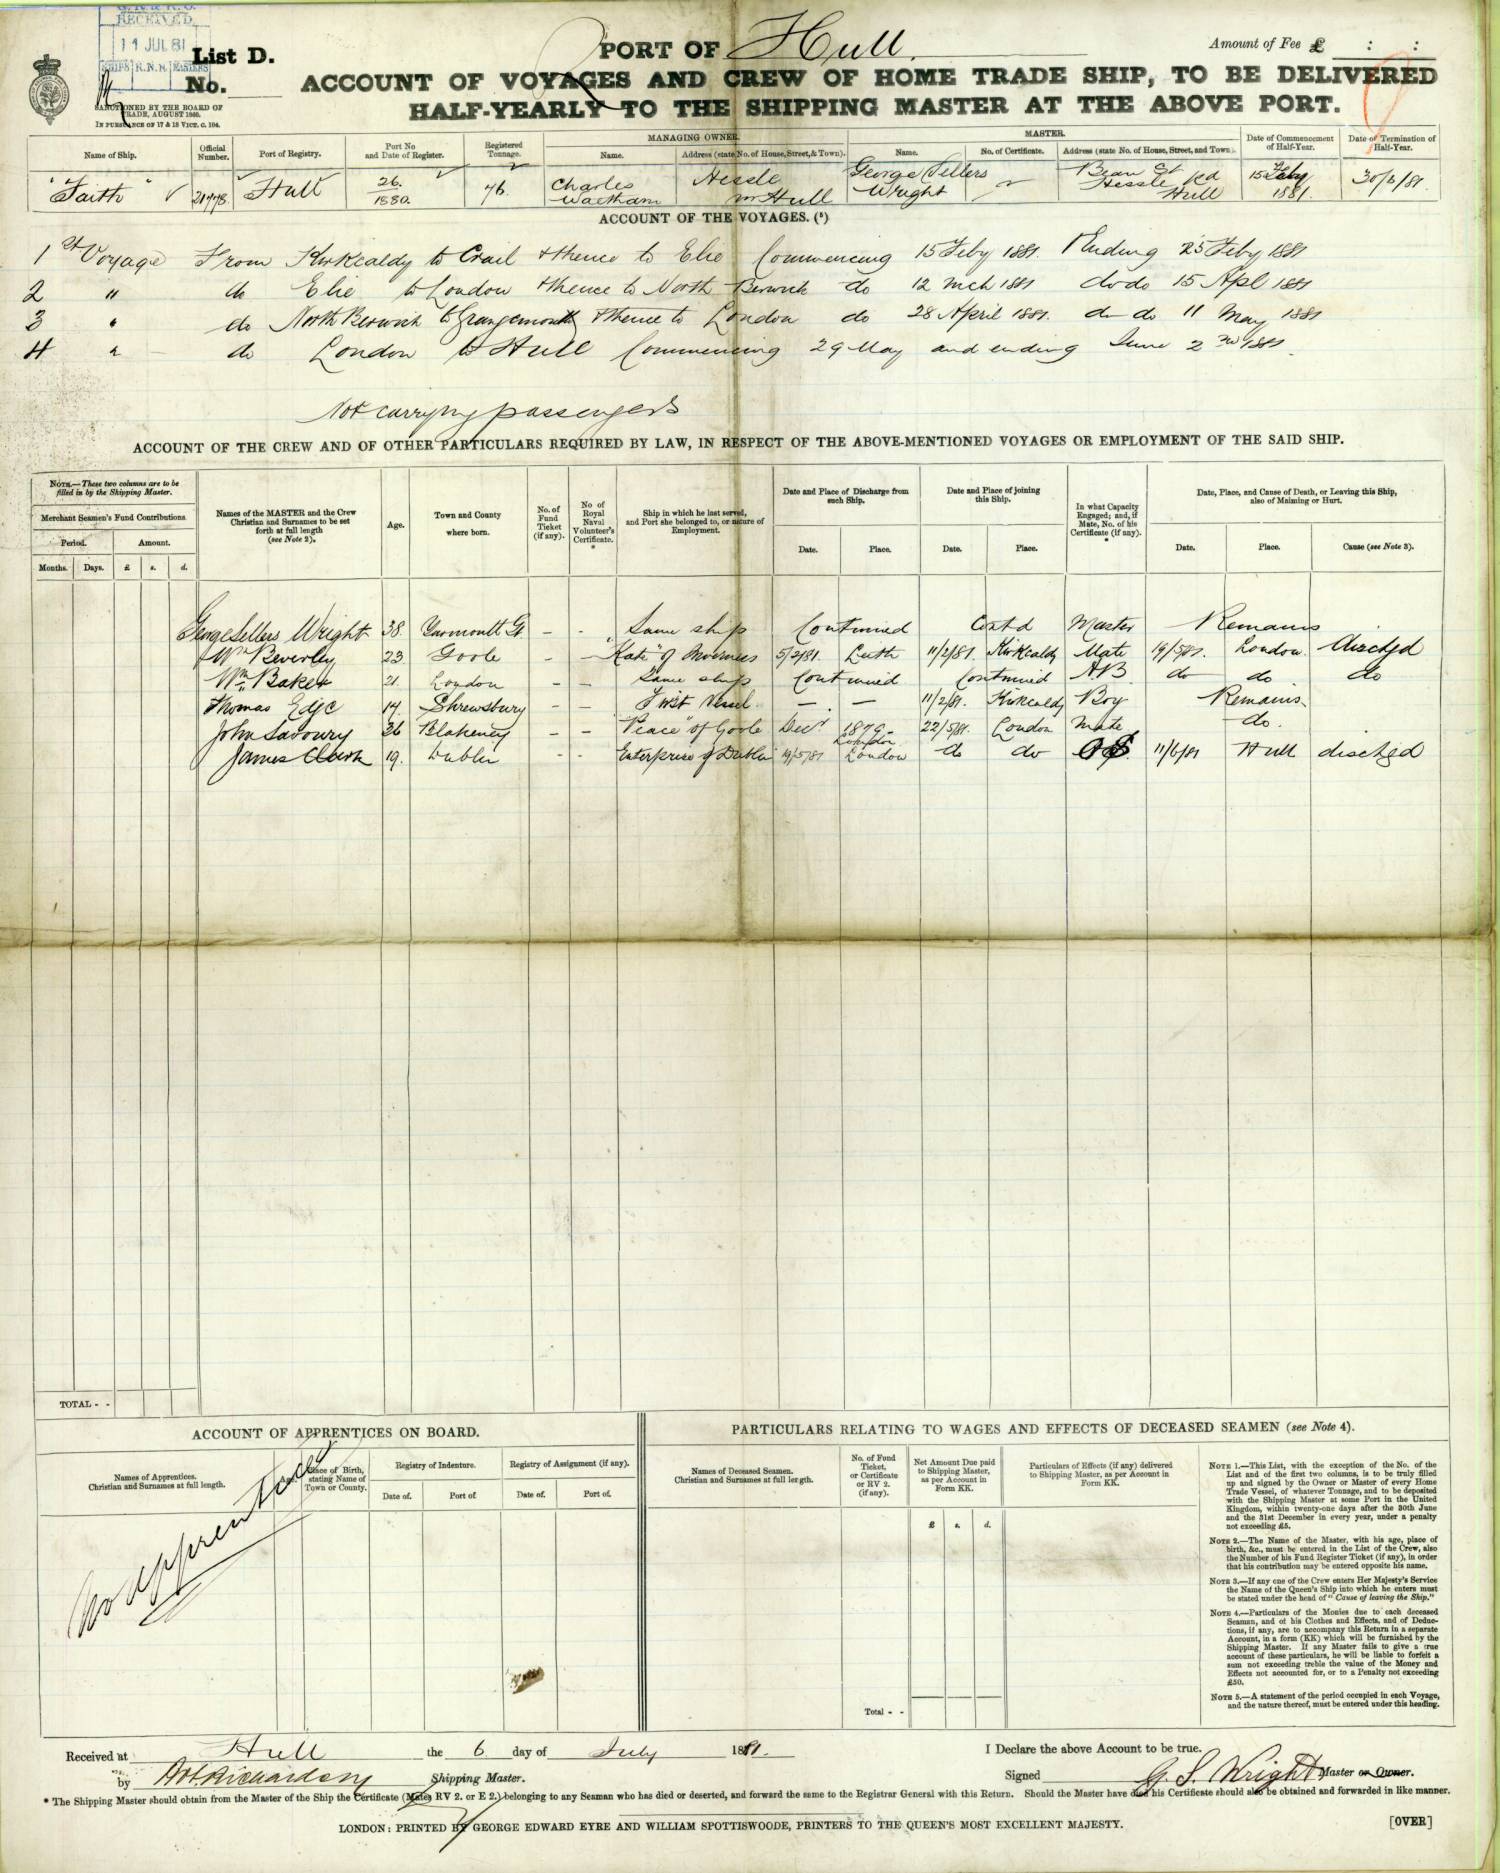 G. R. & R. O.
RECEIVED
11 JUL 81
SHIPS R.N.R. MASTERS
List D.
No.
SANCTIONED BY THE BOARD OF
TRADE, AUGUST 1860.
IN PURSUANCE OF 17 & 18 VICT. C. 104.
PORT OF Hull.
Amount of Fee £ : :
ACCOUNT OF VOYAGES AND CREW OF HOME TRADE SHIP, TO BE DELIVERED
HALF-YEARLY TO THE SHIPPING MASTER AT THE ABOVE PORT.
Name of Ship. Official Number. Port of Registry. Port No and Date of Register. Registered Tonnage. MANAGING OWNER. Name. Address (state No. of House, Street, & Town). MASTER. Name. No. of Certificate. Address (state No. of House, Street, and Town). Date of Commencement of Half-Year. Date of Termination of Half-Year.
"Faith" 21778 Hull 26. 1880. 76. Charles Waltham Hessle nr Hull George Sellers Wright Bean St Hessle Rd Hull 15 Feby 1881. 30/6/81.
ACCOUNT OF THE VOYAGES. (5)
1st Voyage From Kirkcaldy to Crail & thence to Elie Commencing 15 Feby 1881. Ending 25 Feby 1881
2 " do Elie to London & thence to North Berwick do 12 Mch 1881 do do 15 Apl 1881
3 " do North Berwick to Grangemouth & thence to London do 28 April 1881. do do 11 May 1881
4 " do London to Hull Commencing 29 May and ending June 2nd 1881.
Not carrying passengers
ACCOUNT OF THE CREW AND OF OTHER PARTICULARS REQUIRED BY LAW, IN RESPECT OF THE ABOVE-MENTIONED VOYAGES OR EMPLOYMENT OF THE SAID SHIP.
NOTE.—These two columns are to be filled in by the Shipping Master.
Merchant Seamen's Fund Contributions
Period. Amount.
Months. Days. £ s. d.
Names of the MASTER and the Crew Christian and Surnames to be set forth at full length (see Note 2).
Age.
Town and County where born.
No. of Fund Ticket (if any).
No of Royal Naval Volunteer's Certificate. *
Ship in which he last served, and Port she belonged to, or nature of Employment.
Date and Place of Discharge from such Ship.
Date. Place.
Date and Place of joining this Ship.
Date. Place.
In what Capacity Engaged; and, if Mate, No. of his Certificate (if any). *
Date, Place, and Cause of Death, or Leaving this Ship, also of Maiming or Hurt.
Date. Place. Cause (see Note 3).
George Sellers Wright 38. Yarmouth - - Same ship Continued Contd Master Remains
Wm Beverley 23 Goole - - "Kate" of Inverness 5/2/81. Leith 11/2/81. Kirkcaldy Mate 19/5/81. London. dischgd
Wm Baker 21. London - - Same ship Continued Continued AB do do do
Thomas Edge 14. Shrewsbury - - First Vessel - - 11/2/81. Kirkcaldy Boy Remains
John Savoury 36 Blakeney - - "Peace" of Goole Decr 1879 London 22/5/81. London Mate do.
James Clark 19. Dublin - - "Enterprise of Dublin" 19/5/81 London do do OS. 11/6/81 Hull dischgd
TOTAL - -
ACCOUNT OF APPRENTICES ON BOARD.
Names of Apprentices. Christian and Surnames at full length.
Age. Place of Birth, stating Name of Town or County.
Registry of Indenture.
Date of. Port of.
Registry of Assignment (if any).
Date of. Port of.
No apprentices
PARTICULARS RELATING TO WAGES AND EFFECTS OF DECEASED SEAMEN (see Note 4).
Names of Deceased Seamen. Christian and Surnames at full length.
No. of Fund Ticket, or Certificate or RV 2. (if any).
Net Amount Due paid to Shipping Master, as per Account in Form KK.
£ s. d.
Particulars of Effects (if any) delivered to Shipping Master, as per Account in Form KK.
Total - -
NOTE 1.—This List, with the exception of the No. of the
List and of the first two columns, is to be truly filled
up and signed by the Owner or Master of every Home
Trade Vessel, of whatever Tonnage, and to be deposited
with the Shipping Master at some Port in the United
Kingdom, within twenty-one days after the 30th June
and the 31st December in every year, under a penalty
not exceeding £5.
NOTE 2.—The Name of the Master, with his age, place of
birth, &c., must be entered in the List of the Crew, also
the Number of his Fund Register Ticket (if any), in order
that his contribution may be entered opposite his name.
NOTE 3.—If any one of the Crew enters Her Majesty's Service
the Name of the Queen's Ship into which he enters must
be stated under the head of "Cause of leaving the Ship."
NOTE 4.—Particulars of the Monies due to each deceased
Seaman, and of his Clothes and Effects, and of Deduc-
tions, if any, are to accompany this Return in a separate
Account, in a form (KK) which will be furnished by the
Shipping Master. If any Master fails to give a true
account of these particulars, he will be liable to forfeit a
sum not exceeding treble the value of the Money and
Effects not accounted for, or to a Penalty not exceeding
£50.
NOTE 5.—A statement of the period occupied in each Voyage,
and the nature thereof, must be entered under this heading.
Received at Hull the 6 day of July 1881.
by Richardson Shipping Master.
I Declare the above Account to be true.
Signed G. S. Wright Master or Owner.
* The Shipping Master should obtain from the Master of the Ship the Certificate (Mates RV 2. or E 2.) belonging to any Seaman who has died or deserted, and forward the same to the Registrar General with this Return. Should the Master have died his Certificate should also be obtained and forwarded in like manner.
LONDON: PRINTED BY GEORGE EDWARD EYRE AND WILLIAM SPOTTISWOODE, PRINTERS TO THE QUEEN'S MOST EXCELLENT MAJESTY.
[OVER]